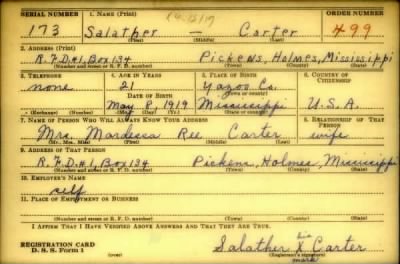 SERIAL NUMBER 1. NAME (Print) ORDER NUMBER
173 Salather — Carter 499
(First) (Middle) (Last)
2. ADDRESS (Print)
R.F.D.#1, Box 134 Pickens, Holmes, Mississippi
(Number and street or R. F. D. number) (Town) (County) (State)
3. TELEPHONE 4. AGE IN YEARS 5. PLACE OF BIRTH 6. COUNTRY OF CITIZENSHIP
none 21 Yazoo Co.
DATE OF BIRTH (Town or county)
May 8, 1919 Mississippi U.S.A.
(Exchange) (Number) (Mo.) (Day) (Yr.) (State or country)
7. NAME OF PERSON WHO WILL ALWAYS KNOW YOUR ADDRESS 8. RELATIONSHIP OF THAT PERSON
Mrs. Ree Carter wife
(Mr., Mrs., Miss) (First) (Middle) (Last)
9. ADDRESS OF THAT PERSON
R.F.D.#1, Box 134 Pickens, Holmes, Mississippi
(Number and street or R. F. D. number) (Town) (County) (State)
10. EMPLOYER'S NAME
self
11. PLACE OF EMPLOYMENT OR BUSINESS
(Number and street or R. F. D. number) (Town) (County) (State)
I AFFIRM THAT I HAVE VERIFIED ABOVE ANSWERS AND THAT THEY ARE TRUE.
REGISTRATION CARD
D. S. S. Form 1 (over)
his
Salather X Carter
mark
(Registrant's signature)